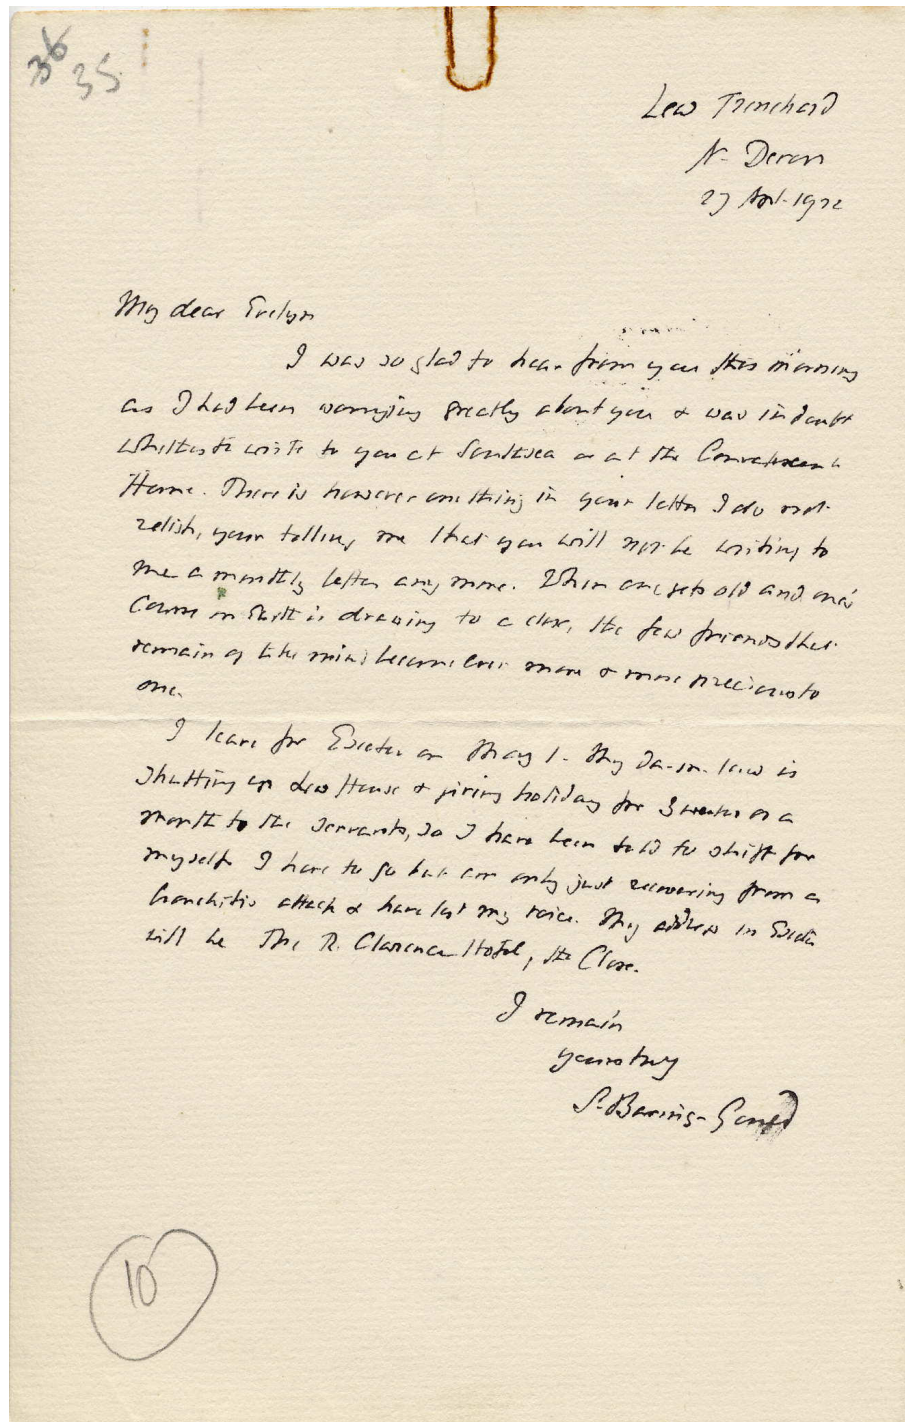 36
35
Lew Trenchard
N. Devon
27 Apl. 1922
My dear Evelyn
I was so glad to hear from you this morning
as I had been worrying greatly about you & was in doubt
whether to write to you at Southsea or at the
Home. There is however one thing in your letter I do not
relish, your telling me that you will not be writing to
me a monthly letter any more. When one gets old and one's
course on Earth is drawing to a close, the few friends that
remain of like mind become ever more & more precious to
one.
I leave for Exeter on May 1. My Da-in-law is
shutting up Lew House & giving holiday for 3 weeks or a
month to the servants, so I have been told to shift for
myself. I have to go but am only just recovering from a
bronchitis attack & have lost my voice. My address in Exeter
will be The R. Clarence Hotel, the Close.
I remain
yours try
S. Baring-Gould
10